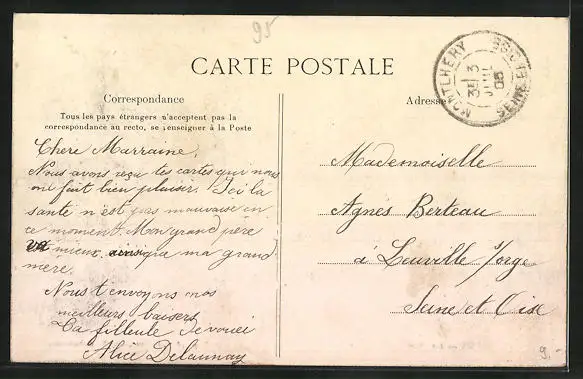 95
CARTE POSTALE
Correspondance
Tous les pays étrangers n'acceptent pas la
correspondance au recto, se renseigner à la Poste
Chere Marraine,
Nous avons reçu tes cartes qui nous
ont fait bien plaisir. Ici la
santé n'est pas mauvaise en
ce moment. Mon grand père
va mieux, ainsi que ma grand
mere.
Nous t'envoyons nos
meilleurs baisers
Ta filleule
Alice Delaunay
Adresse
MONTLHERY
SEINE-ET-OISE
3
JUIL
05
Mademoiselle
Agnès Berteau
à Leuville s/orge
Seine et Oise
9.-